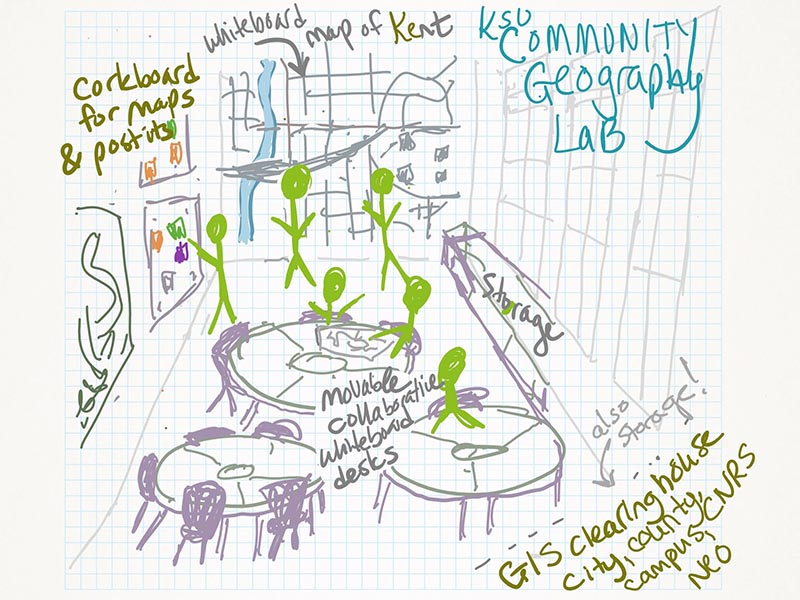 whiteboard map of Kent
KSU
COMMUNITY
Geography
LaB
corkboard
for maps
& postits
Storage
movable
collaborative
whiteboard
desks
also
storage!
GIS clearing house
city, county,
campus, CNRS
NEO